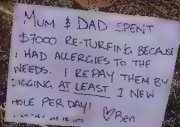 MUM & DAD SPENT
$7000 RE-TURFING BECAUSE
I HAD ALLERGIES TO THE
WEEDS. I REPAY THEM BY
DIGGING AT LEAST 1 NEW
HOLE PER DAY!
♡Ren